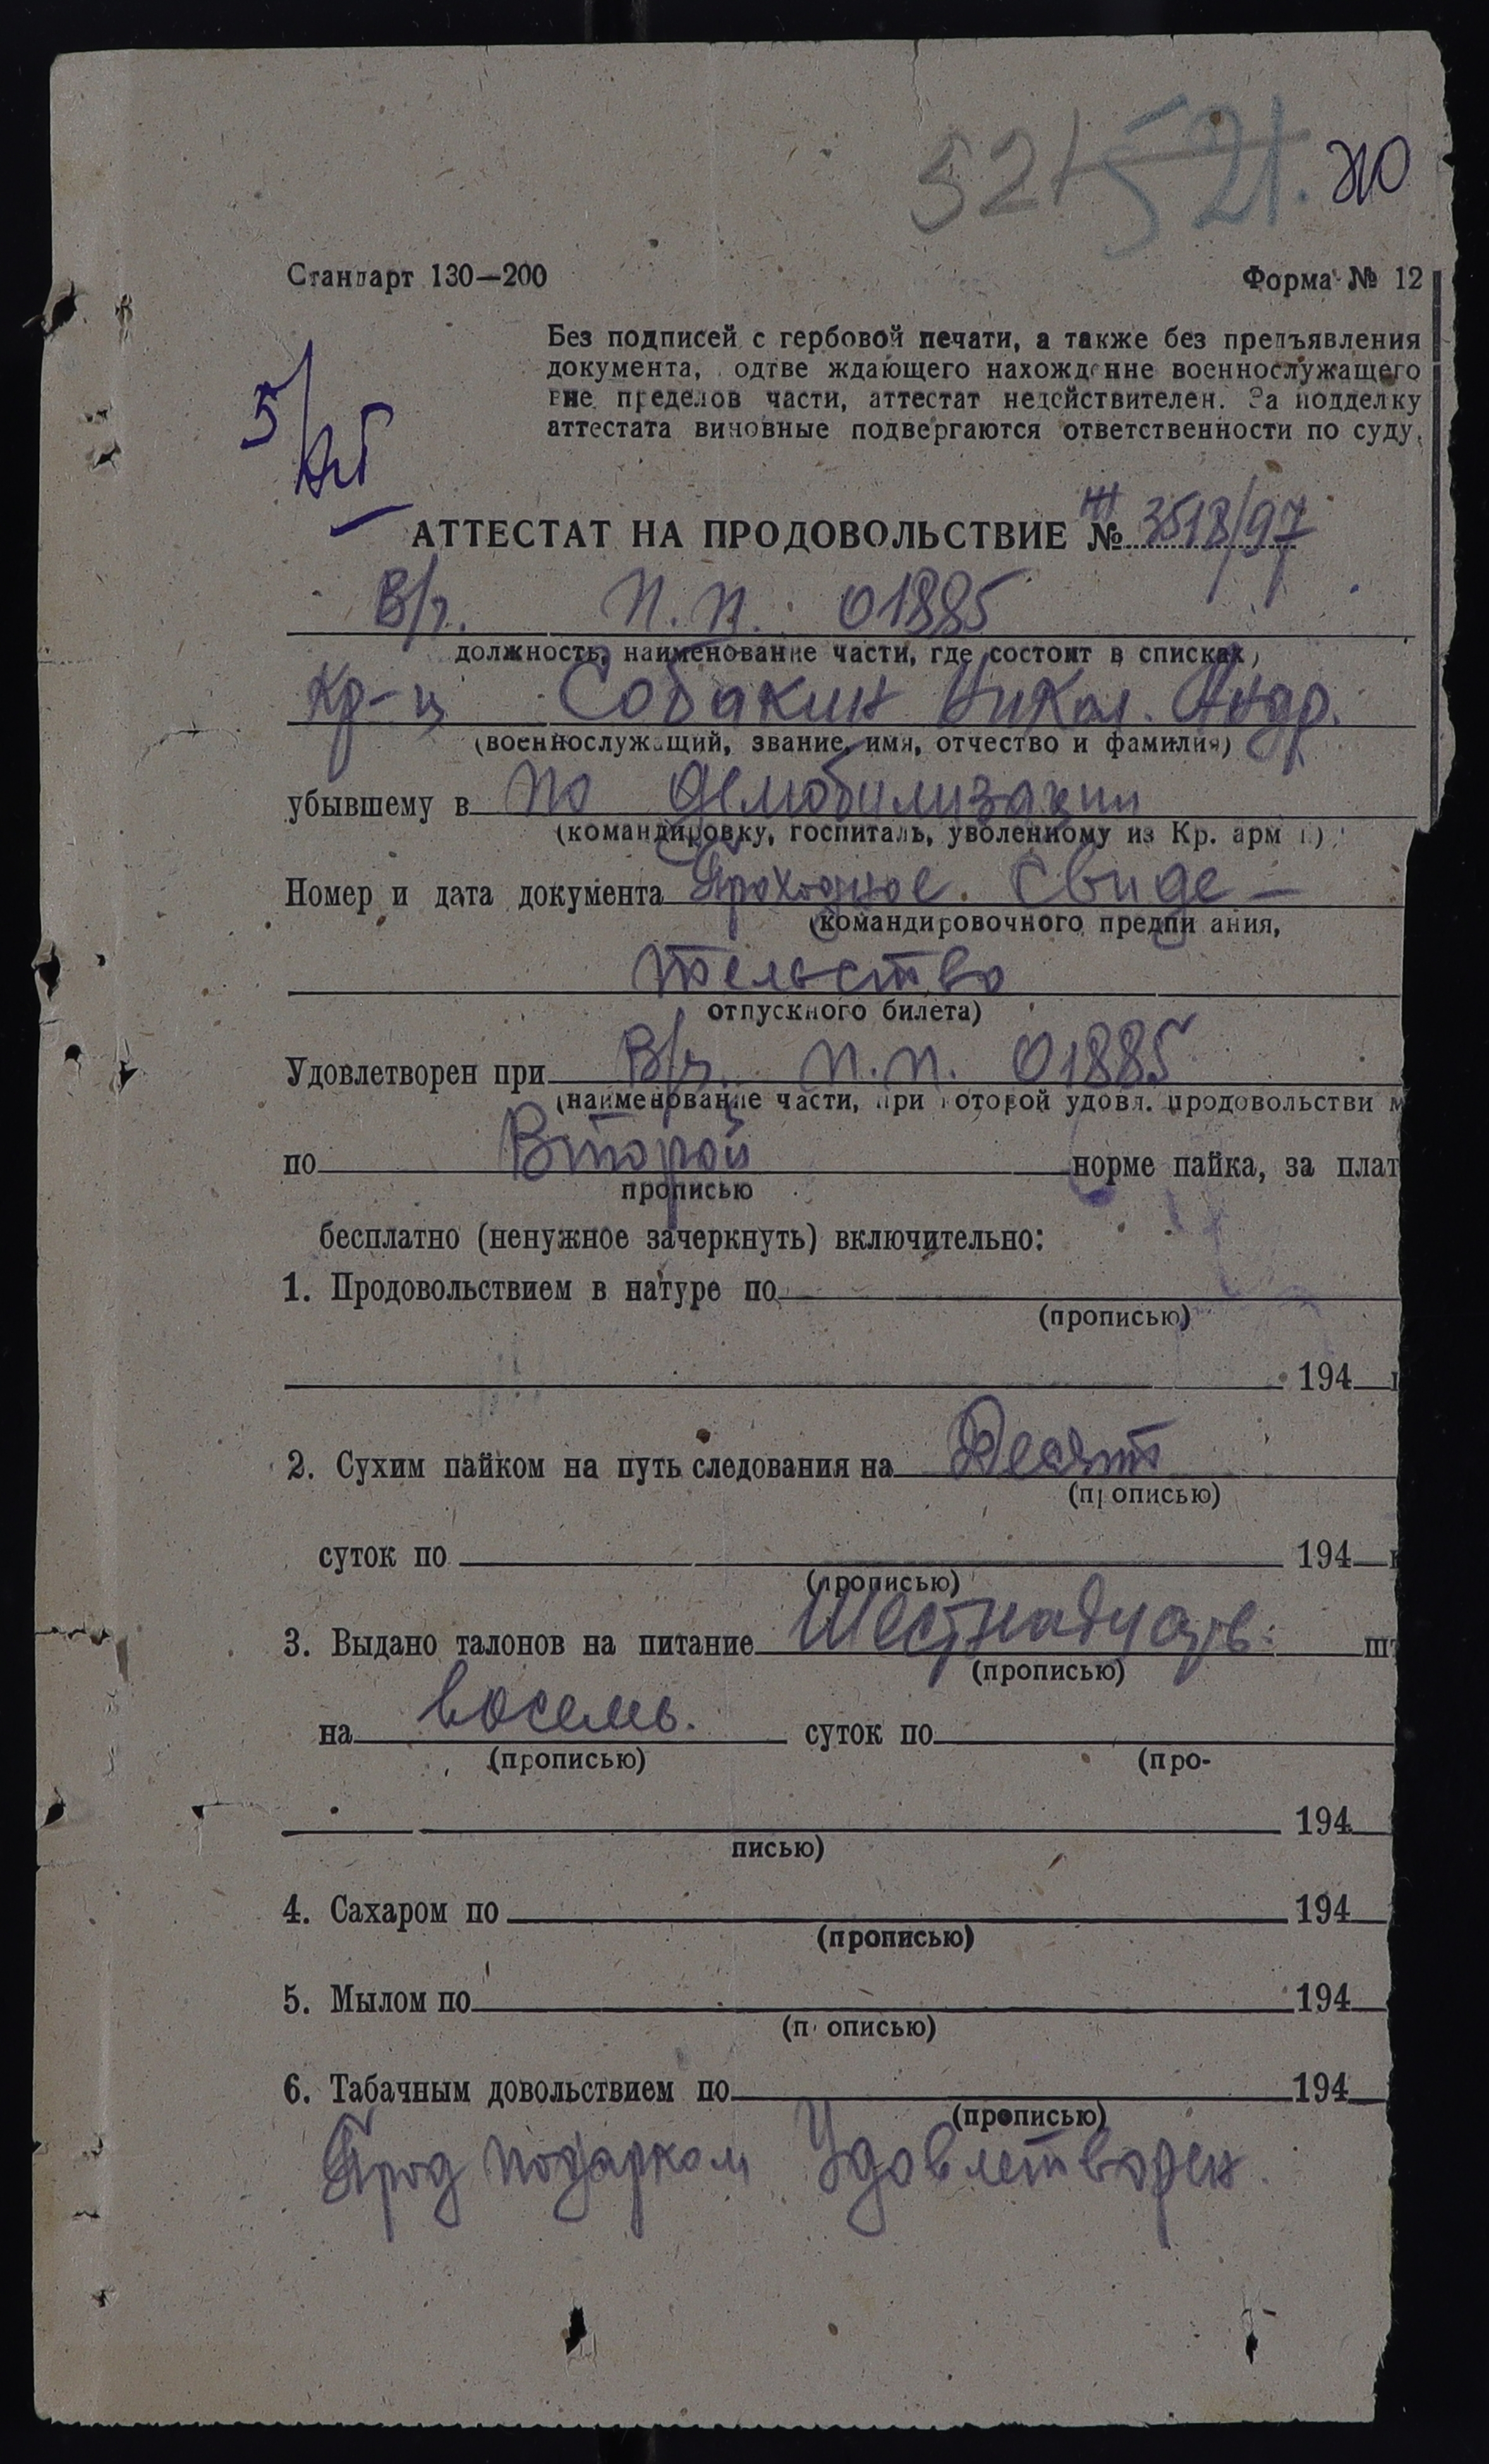 521 521.
Стандарт 130—200 Форма № 12
Без подписей с гербовой печати, а также без предъявления
документа, одтве ждающего нахождение военнослужащего
вне пределов части, аттестат недействителен. За подделку
аттестата виновные подвергаются ответственности по суду.
5/
АТТЕСТАТ НА ПРОДОВОЛЬСТВИЕ № 3518/97
В/ч. п.п. 01885
должность, наименование части, где состоит в списках)
Кр-ц Собакин Никол. Андр.
(военнослужащий, звание, имя, отчество и фамилия)
убывшему в по демобилизации
(командировку, госпиталь, уволенному из Кр. арм и)
Номер и дата документа Проходное. Свиде-
(командировочного предпи ания,
тельство
отпускного билета)
Удовлетворен при В/ч. п.п. 01885
(наименование части, при которой удовл. продовольстви м
по Второй норме пайка, за плат
прописью
бесплатно (ненужное зачеркнуть) включительно:
1. Продовольствием в натуре по
(прописью)
194
2. Сухим пайком на путь следования на Десять
(прописью)
суток по 194
(прописью)
3. Выдано талонов на питание Шестнадцать. шт
(прописью)
на восемь. суток по
(прописью) (про-
194
писью)
4. Сахаром по 194
(прописью)
5. Мылом по 194
(п описью)
6. Табачным довольствием по 194
(прописью)
Прод подарком Удовлетворен.